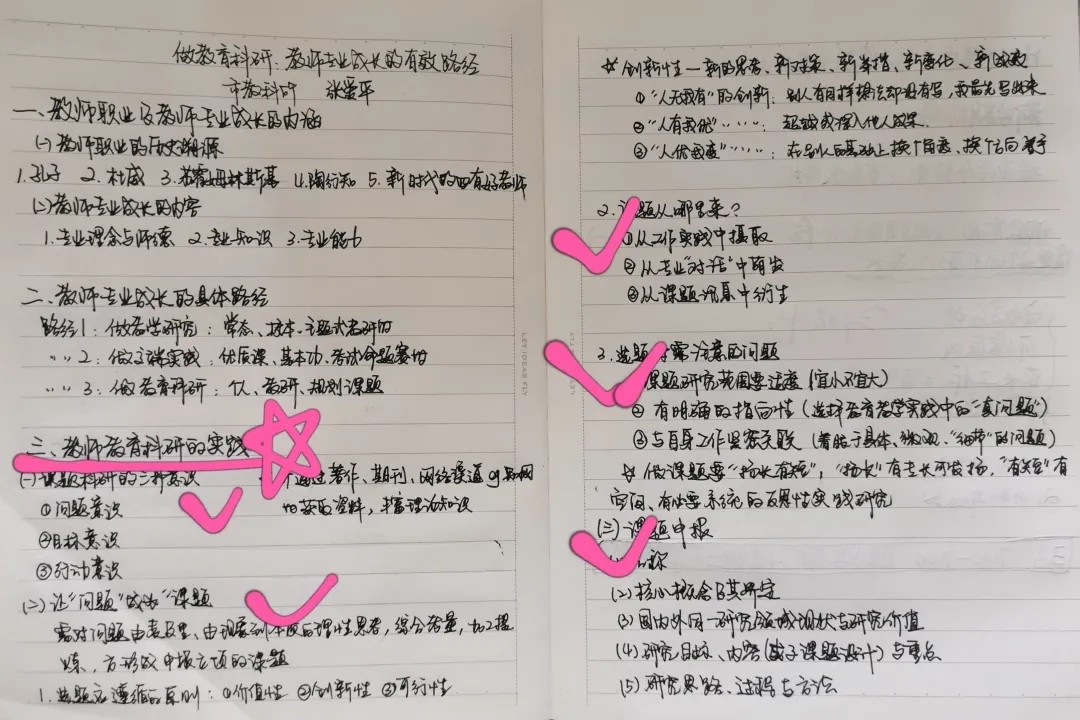 做教育科研：教师专业成长的有效路径
市教科研 张爱平
一、教师职业及教师专业成长的内涵
(一)教师职业的历史溯源
1.孔子 2.杜威 3.苏霍姆林斯基 4.陶行知 5.新时代的四有好教师
(二)教师专业成长的内容
1.专业理念与师德 2.专业知识 3.专业能力
二、教师专业成长的具体路径
路径1：做教学研究：常态、校本、主题式教研
〃〃2：做实践：优质课、基本功、命题赛
〃〃3：做教育科研：教研、规划课题
三、教师教育科研的实践
(一)课题科研的三种意识
通过著作、期刊、网络渠道 如知网
①问题意识
获取资料，丰富理论知识
②目标意识
③行动意识
(二)让“问题”成为“课题
需对问题由表及里、由现象到本质的理性思考，综合考量，加工提
炼，方形成申报立项的课题
1.选题应遵循的原则：①价值性 ②创新性 ③可行性
KEY IDEAS FLY
KEY IDEAS FLY
☆创新性—新的思考、新对策、新举措、新变化、新成效
①“人无我有”的创新：别人有同样想法却没有写，我首先写出来
②“人有我优”……：超越或深入他人成果.
③“人优我变”……：在别人的基础上换个角度、换个方向
2.课题从哪里来？
①从工作实践中摄取
②从专业“对话”中萌发
③从课题讯息中衍生
3.选题需注意的问题
课题研究范围要适度(宜小不宜大)
②有明确的指向性(选择教育教学实践中的“真问题”)
③与自身工作紧密关联(着眼于具体、微观、“细节”的问题)
☆做课题要“有长有短”，“长”有有“有短”有
空间、有必要系统的反复性实践研究
(三)课题申报
名称
(2)核心概念及其界定
(3)国内外同一研究领域现状与研究价值
(4)研究目标、内容(或子课题设计)与重点
(5)研究思路、过程与方法